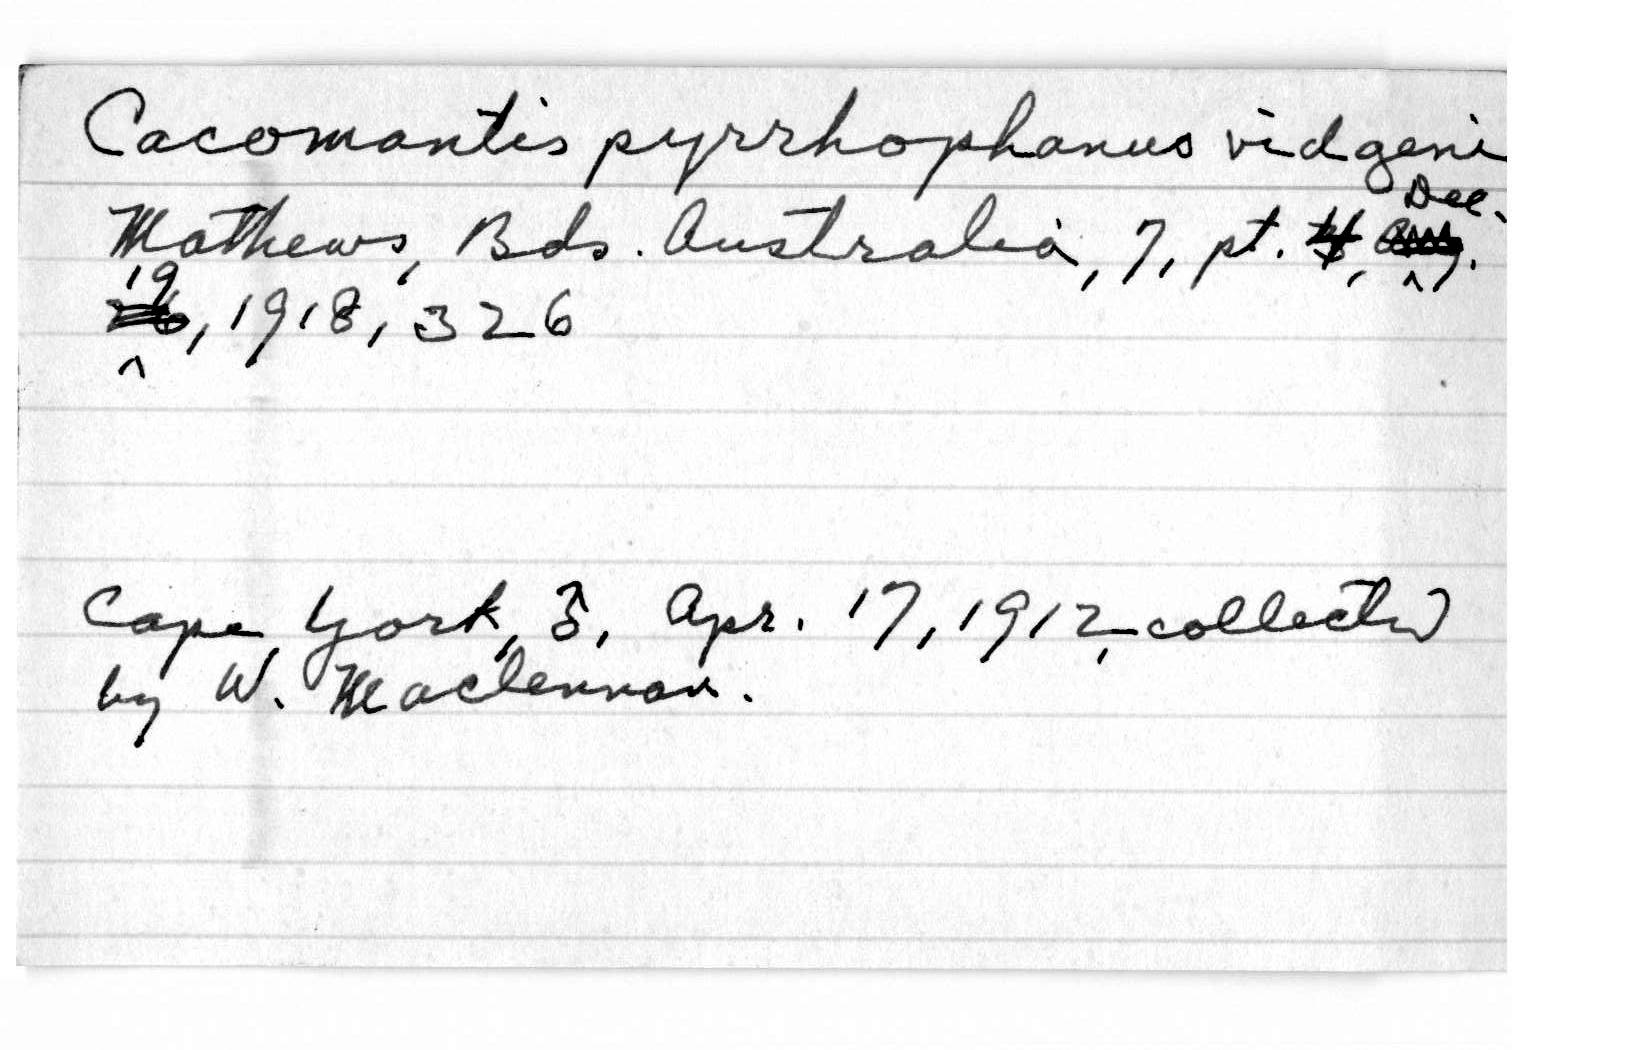 Cacomantis pyrrhophanus vidgeni
Mathews, Bds. Australia, 7, pt. 4, Dec.
19, 1918, 326
Cape York, ♂, Apr. 17, 1912, collected
by W. Maclennan.